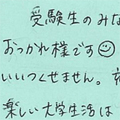 受験生のみな
おつかれ様です☺
いいつくせません。
楽しい大学生活は